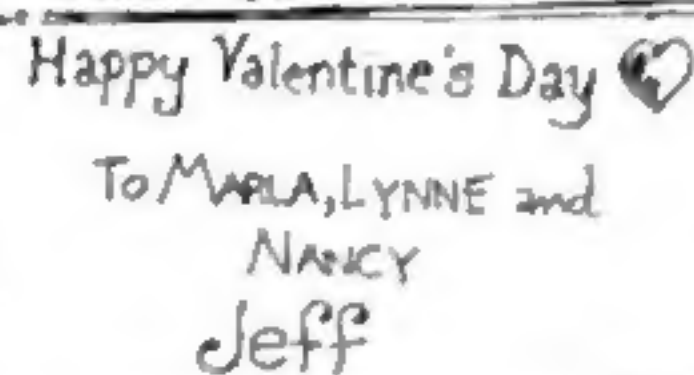 Happy Valentine's Day
To MARLA, LYNNE and
NANCY
Jeff